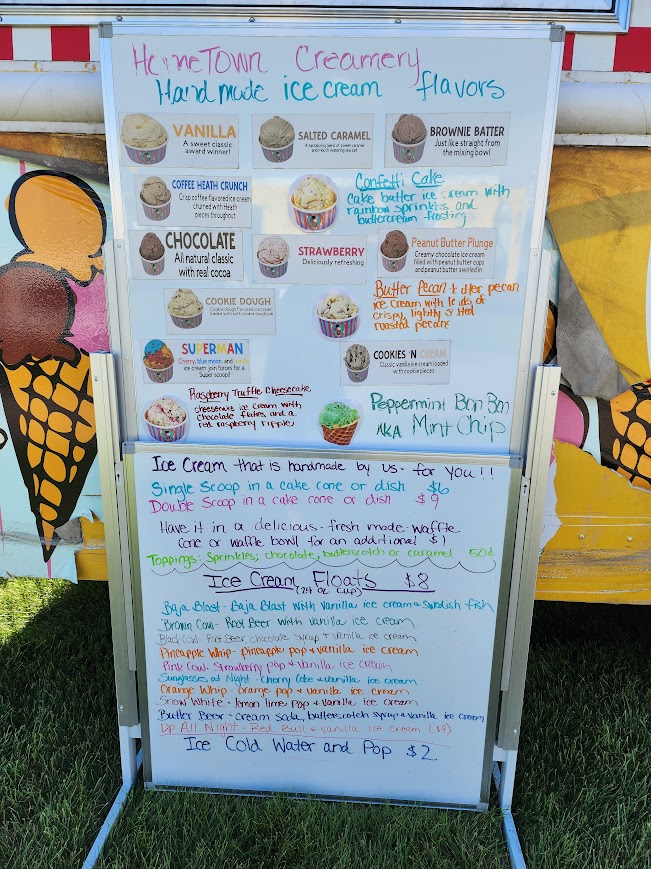 HomeTown Creamery
Handmade ice cream flavors
VANILLA
A sweet classic
award winner!
SALTED CARAMEL
A tantalizing blend of sweet caramel
and mouth watering sea salt
BROWNIE BATTER
Just like straight from
the mixing bowl
COFFEE HEATH CRUNCH
Crisp coffee flavored ice cream
churned with Heath
pieces throughout
Confetti Cake
Cake batter ice cream with
rainbow sprinkles and
buttercream frosting
CHOCOLATE
All natural classic
with real cocoa
STRAWBERRY
Deliciously refreshing
Peanut Butter Plunge
Creamy chocolate ice cream
filled with peanut butter cups
and peanut butter swirled in
COOKIE DOUGH
Cookie dough flavored ice cream
loaded with cookie dough
Butter Pecan Butter pecan
ice cream with loads of
crispy, lightly salted
roasted pecans
SUPERMAN
Cherry, blue moon, and vanilla
ice cream join forces for a
Super scoop!!
COOKIES 'N CREAM
Classic vanilla ice cream loaded
with cookie pieces
Raspberry Truffle Cheesecake
cheesecake ice cream with
chocolate flakes and a
red raspberry ripple
Peppermint Bon Bon
AKA Mint Chip
Ice Cream that is handmade by us - for you!!
Single Scoop in a cake cone or dish $6
Double Scoop in a cake cone or dish $9
Have it in a delicious - fresh made - waffle
cone or waffle bowl for an additional $1
Toppings: Sprinkles, chocolate, butterscotch or caramel 50¢
Ice Cream Floats $8
(24 oz. cup)
Baja Blast - Baja Blast with Vanilla ice cream & Swedish fish
Brown Cow - Root Beer with vanilla ice cream
Black Cow - Root Beer chocolate syrup + vanilla ice cream
Pineapple Whip - pineapple pop + vanilla ice cream
Pink Cow - Strawberry pop + vanilla ice cream
Sunglasses at Night - Cherry Coke + vanilla ice cream
Orange Whip - orange pop + vanilla ice cream
Snow White - lemon lime pop + vanilla ice cream
Butter Beer - cream soda, butterscotch syrup + vanilla ice cream
Up All Night - Red Bull + vanilla ice cream ($9)
Ice Cold Water and Pop $2